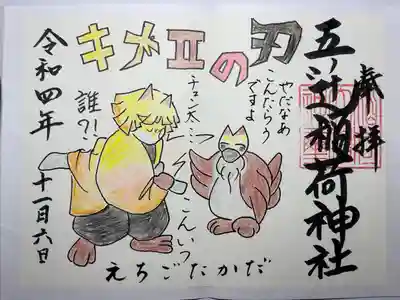 奉拝
五ノ辻稲荷神社
キメⅡの刃
やだなあ
こんたろう
ですよ
チュン太…
こんいつ
誰?!
令和四年
十一月六日
えちごたかだ